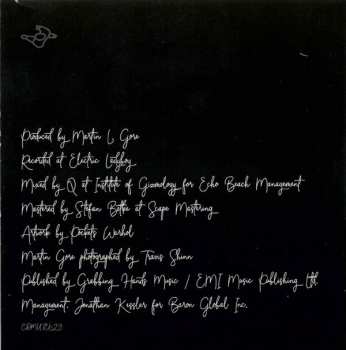 Produced by Martin L Gore
Recorded at Electric Ladyboy
Mixed by Q at Institute of Gizmology for Echo Beach Management
Mastered by Stefan Betke at Scape Mastering
Artwork by Pockets Warhol
Martin Gore photographed by Travis Shinn
Published by Grabbing Hands Music / EMI Music Publishing Ltd.
Management: Jonathan Kessler for Baron Global Inc.